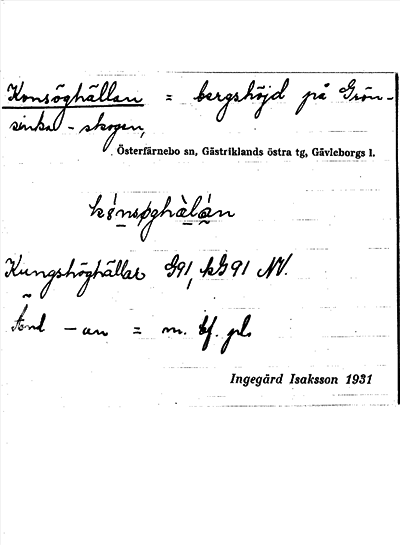 Konsöghällan = bergshöjd på Grön-
sinka-skogen,
Österfärnebo sn, Gästriklands östra tg, Gävleborgs l.
Kungshöghällar G91, kG91 NV.
Änd -an = m. bf. pl.
Ingegärd Isaksson 1931